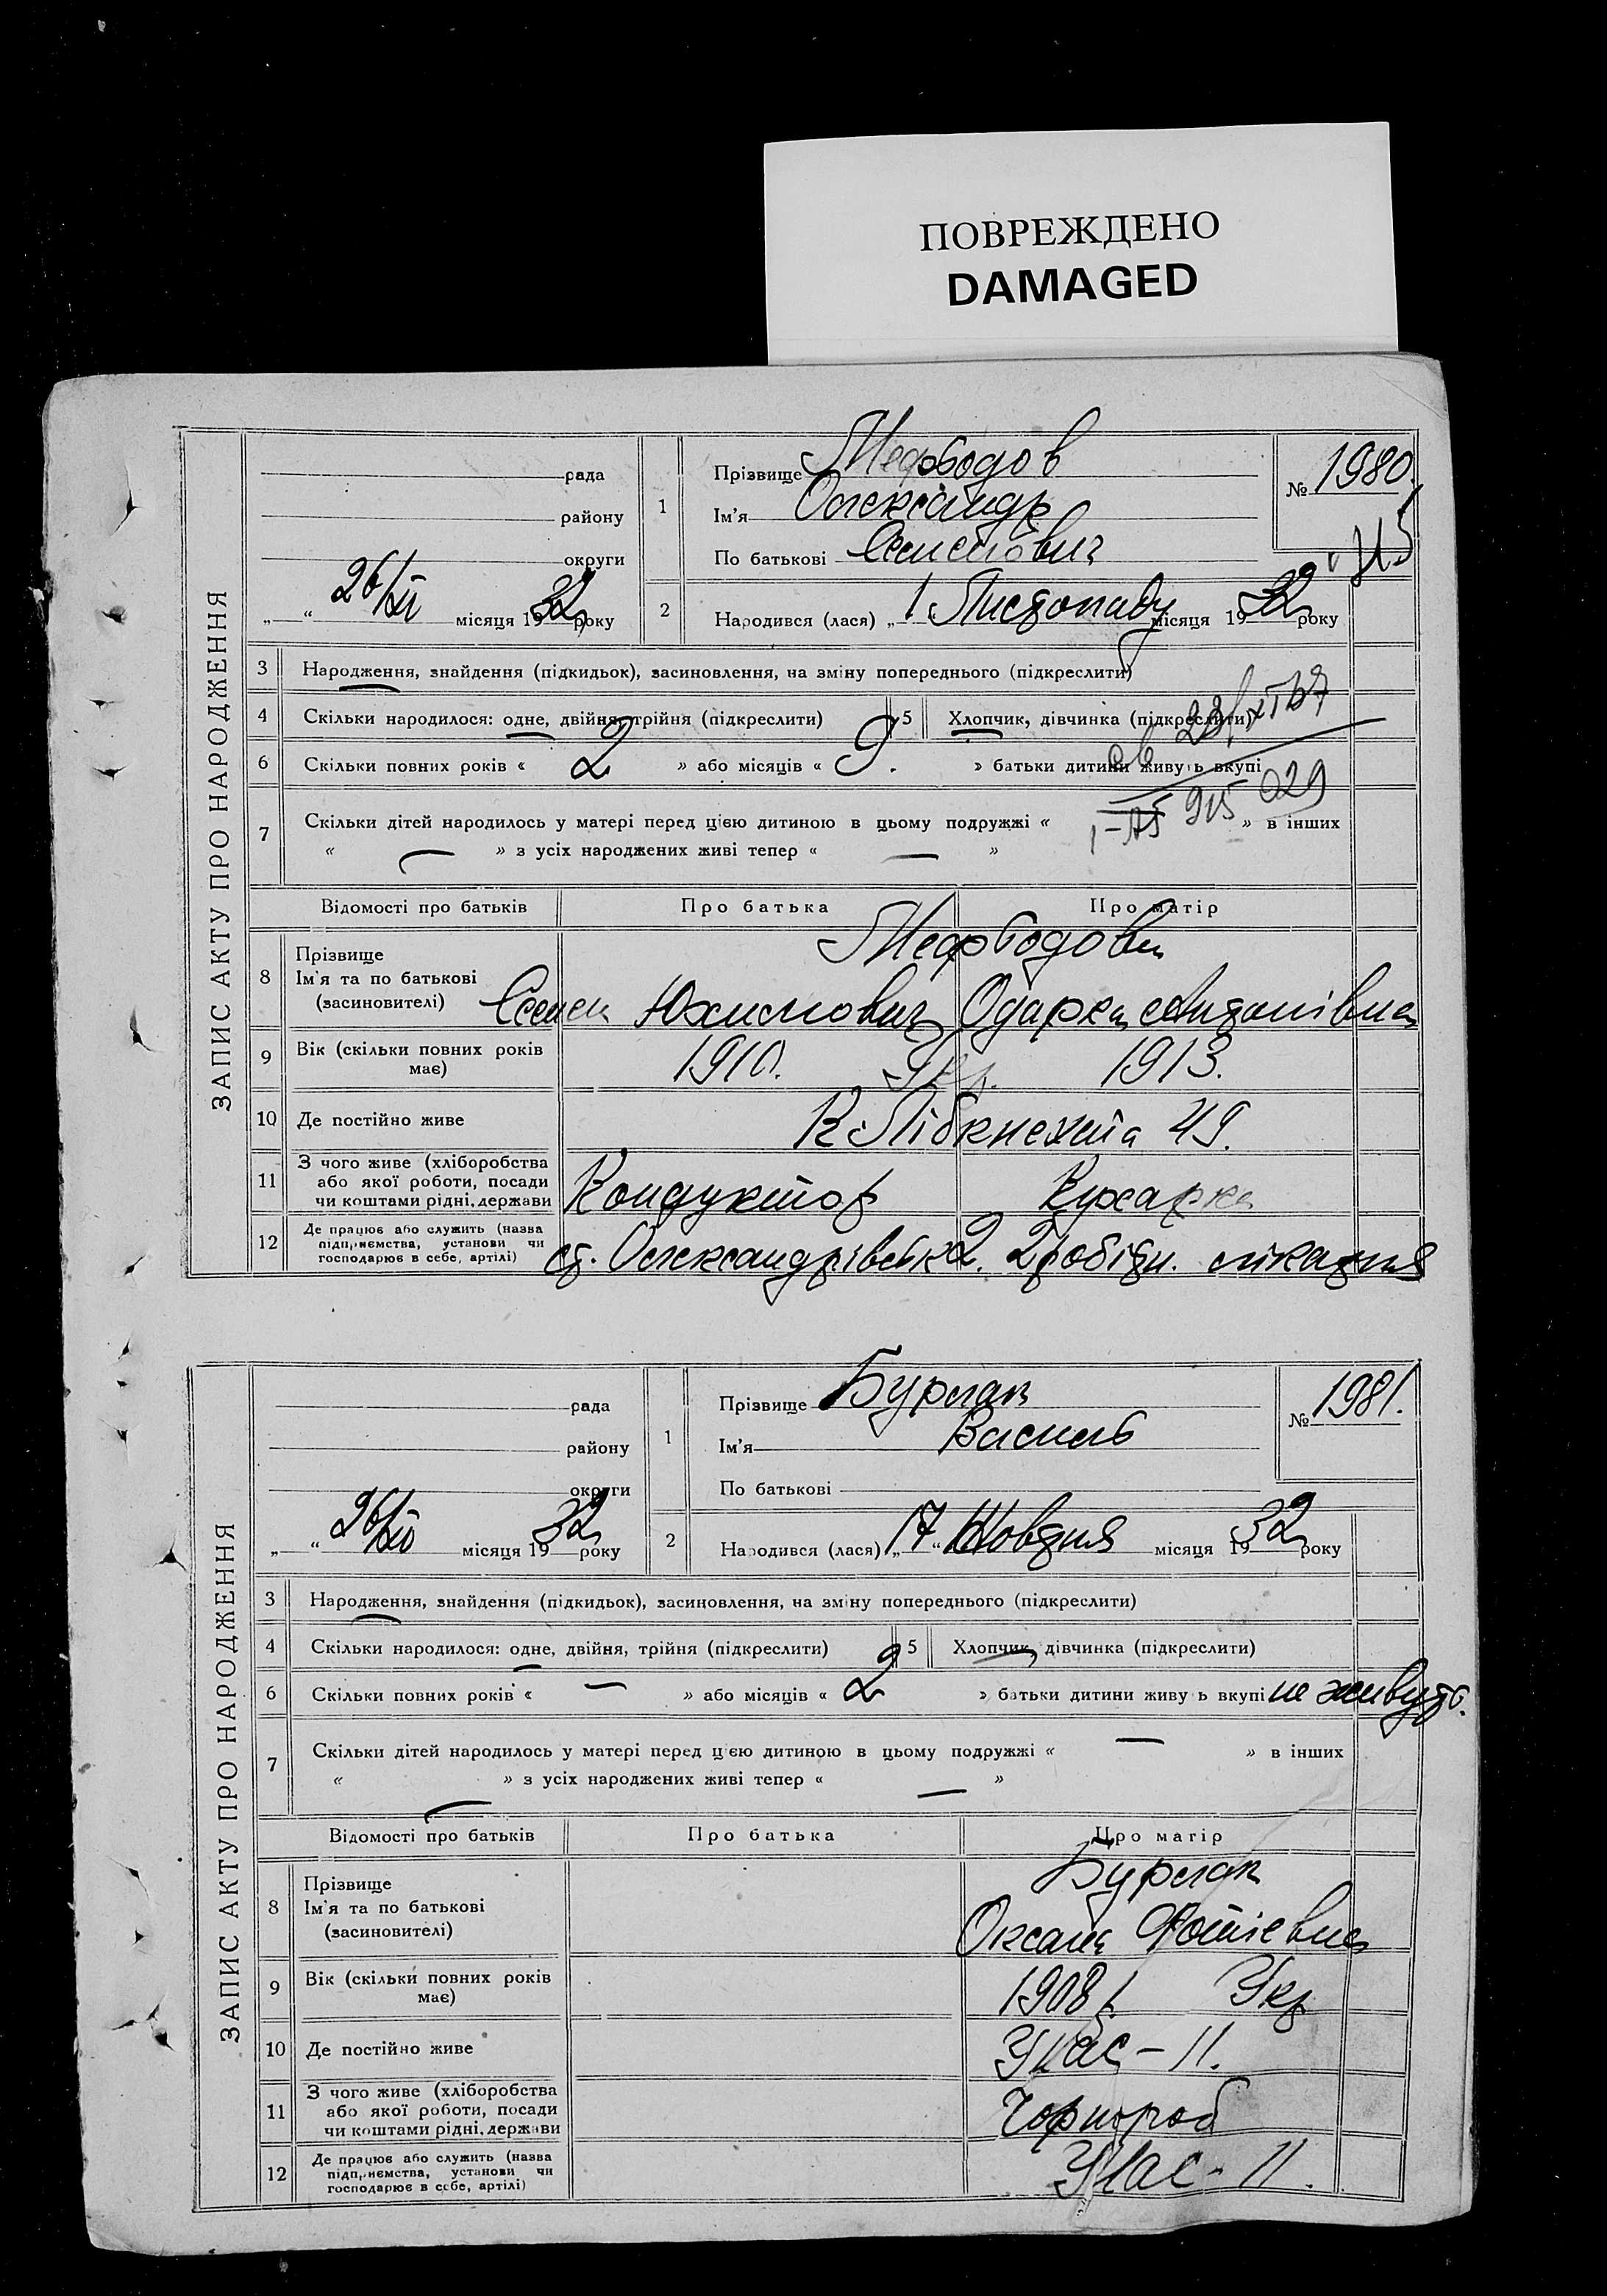 ПОВРЕЖДЕНО
DAMAGED
ЗАПИС АКТУ ПРО НАРОДЖЕННЯ
рада
району
округи
„ “ 26/XII місяця 1932 року
1
Прізвище Мефодов
Ім'я Олександр
По батькові Семенович
№ 1980.
2
Народився (лася) „1“ Листопаду місяця 1932 року
3 Народження, знайдення (підкидьок), засиновлення, на зміну попереднього (підкреслити)
4 Скільки народилося: одне, двійня, трійня (підкреслити) 5 Хлопчик, дівчинка (підкреслити)
6 Скільки повних років « 2 » або місяців « 9. » батьки дитини живуть вкупі
7 Скільки дітей народилось у матері перед цією дитиною в цьому подружжі « » в інших
« — » з усіх народжених живі тепер « — »
Відомості про батьків Про батька Про матір
8 Прізвище
Ім'я та по батькові
(засиновителі)
Мефодови
Семен Юхимович Одарка Антонівна
9 Вік (скільки повних років має) 1910. Укр. 1913.
10 Де постійно живе К. Лібкнехта 49.
11 З чого живе (хліборобства
або якої роботи, посади
чи коштами рідні, держави
Кондуктор Кухарка
12 Де працює або служить (назва
підприємства, установи чи
господарює в себе, артілі)
ст. Олександрівськ 2. 2 робітн. лікарня
ЗАПИС АКТУ ПРО НАРОДЖЕННЯ
рада
району
округи
„ “ 26/XII місяця 1932 року
1
Прізвище Бурлак
Ім'я Василь
По батькові
№ 1981.
2
Народився (лася) „17“ Жовтня місяця 1932 року
3 Народження, знайдення (підкидьок), засиновлення, на зміну попереднього (підкреслити)
4 Скільки народилося: одне, двійня, трійня (підкреслити) 5 Хлопчик, дівчинка (підкреслити)
6 Скільки повних років « — » або місяців « 2 » батьки дитини живуть вкупі не живуть.
7 Скільки дітей народилось у матері перед цією дитиною в цьому подружжі « — » в інших
« » з усіх народжених живі тепер « — »
Відомості про батьків Про батька Про матір
8 Прізвище
Ім'я та по батькові
(засиновителі)
Бурлак
Оксана Фотіевна
9 Вік (скільки повних років має) 1908 р. Укр
10 Де постійно живе
11 З чого живе (хліборобства
або якої роботи, посади
чи коштами рідні, держави
Чорнороб
12 Де працює або служить (назва
підприємства, установи чи
господарює в себе, артілі)